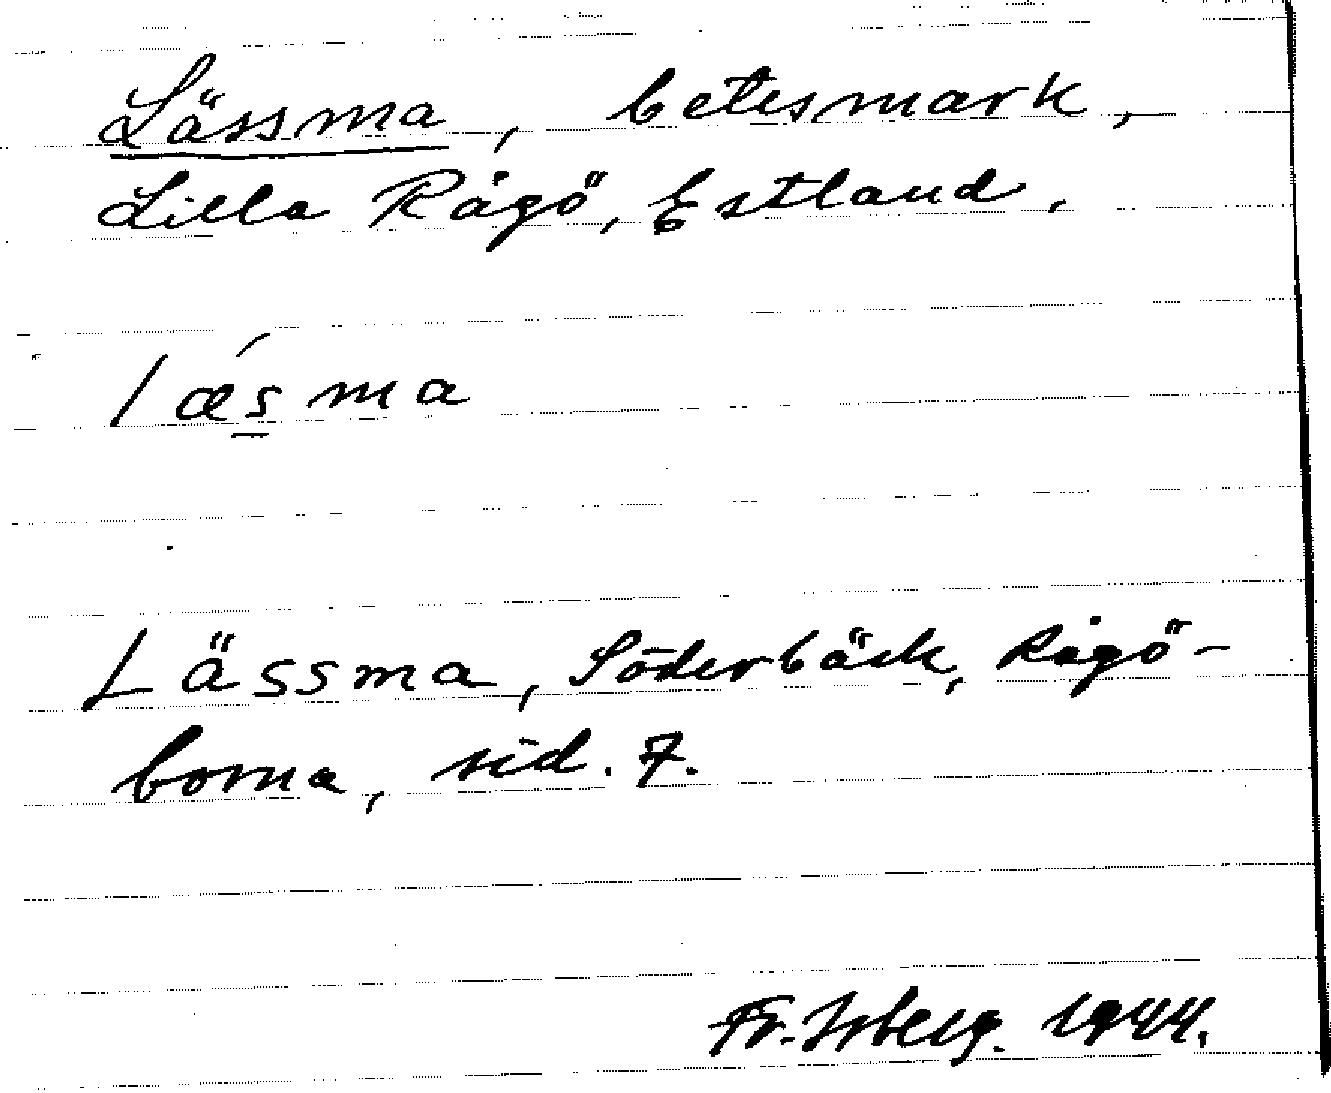 Lässma, betesmark,
Lilla Rågö, Estland.
lǽs̲ma
Lässma, Söderbäck, Rågö-
borna, sid. 7.
1944.